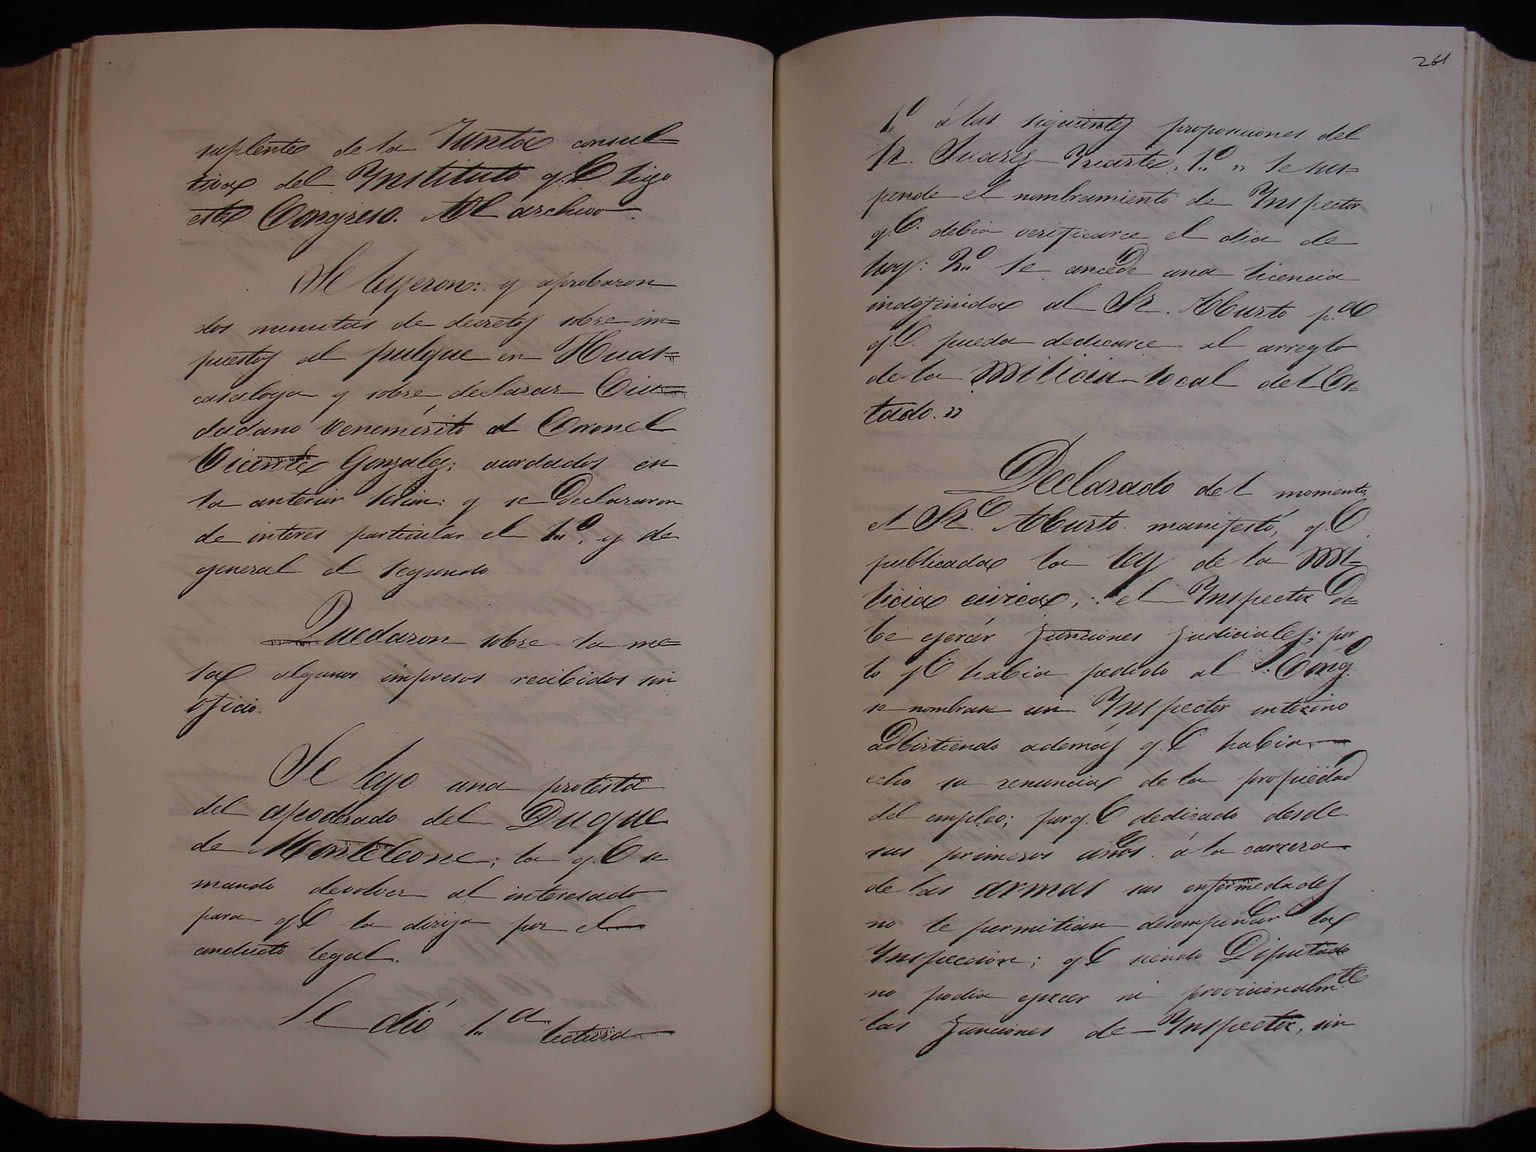 suplente de la Junta consul=
tiva del Instituto q.e hizo
este Congreso. Al archivo.
Se leyeron: y aprobaron
dos minutas de decretos sobre im=
puestos al pulque en Huas=
casaloya y sobre declarar Ciu=
dadano Venemérito al Coronel
Vicente Gonzales; acordados en
la anterior sesion: y se declararon
de interes particular el 1.o, y de
general el segundo
Quedaron sobre la me=
sa algunos impresos recibidos sin
oficio.
Se leyo una protesta
del apoderado del Duque
de Monteleone; la q.e se
mando devolver al interesado
para q.e la dirija por el
conducto legal.
Se dió 1.a lectura
261
1.o á las siguientes proposiciones del
Sr. Suares Yriarte. 1.o "Se sus=
pende el nombramiento de Ynspector
q.e debia verificarce el dia de
hoy: 2.o Se concede una licencia
indefinida al Sr. Aburto p.a
q.e pueda dedicarce al arreglo
de la Milicia local del Es-
tado."
Declarado del momento
el Sr. Aburto manifestó, q.e
publicada la ley de la Mi-
licia civica, el Ynspector de
be ejercer funciones judiciales; por
lo q.e habia pedido al S. Cong.
se nombrase un Ynspector interino
adbirtiendo además q.e habia
echo su renuncia de la propiedad
del empleo; porq.e dedicado desde
sus primeros años á la carrera
de las armas sus enfermedades
no le permitian desempeñar la
Ynspeccion; q.e siendo Diputado
no podia ejercer ni provicionalm.te
las funciones de Ynspector, sin